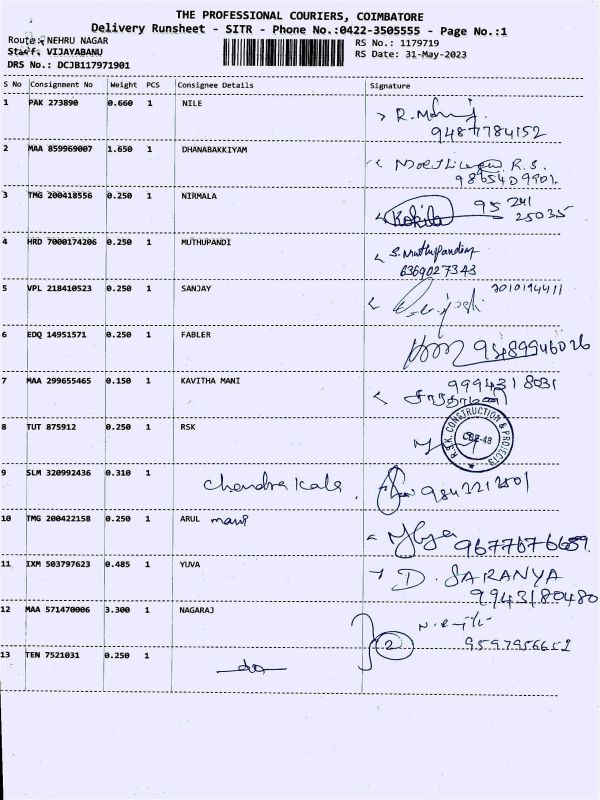 THE PROFESSIONAL COURIERS, COIMBATORE
Delivery Runsheet - SITR - Phone No.:0422-3505555 - Page No.:1
Route: NEHRU NAGAR RS No.: 1179719
Staff: VIJAYABANU RS Date: 31-May-2023
DRS No.: DCJB117971901
S No Consignment No Weight PCS Consignee Details Signature
1 PAK 273890 0.660 1 NILE
9487784152
2 MAA 859969007 1.650 1 DHANABAKKIYAM R.S.
9865409901
3 TMG 200418556 0.250 1 NIRMALA Kokila 95 241
25035
4 HRD 7000174206 0.250 1 MUTHUPANDI S. Muthupandi
6369027343
5 VPL 218410523 0.250 1 SANJAY
6 EDQ 14951571 0.250 1 FABLER 9489946026
7 MAA 299655465 0.150 1 KAVITHA MANI 9994318031
8 TUT 875912 0.250 1 RSK
R.S.K. CONSTRUCTION & PROJECTS
CBE-48
9 SLM 320992436 0.310 1 Chendra Kala
10 TMG 200422158 0.250 1 ARUL mani
11 IXM 503797623 0.485 1 YUVA D. SARANYA
9943180480
12 MAA 571470006 3.300 1 NAGARAJ
2 9597956652
13 TEN 7521031 0.250 1 do